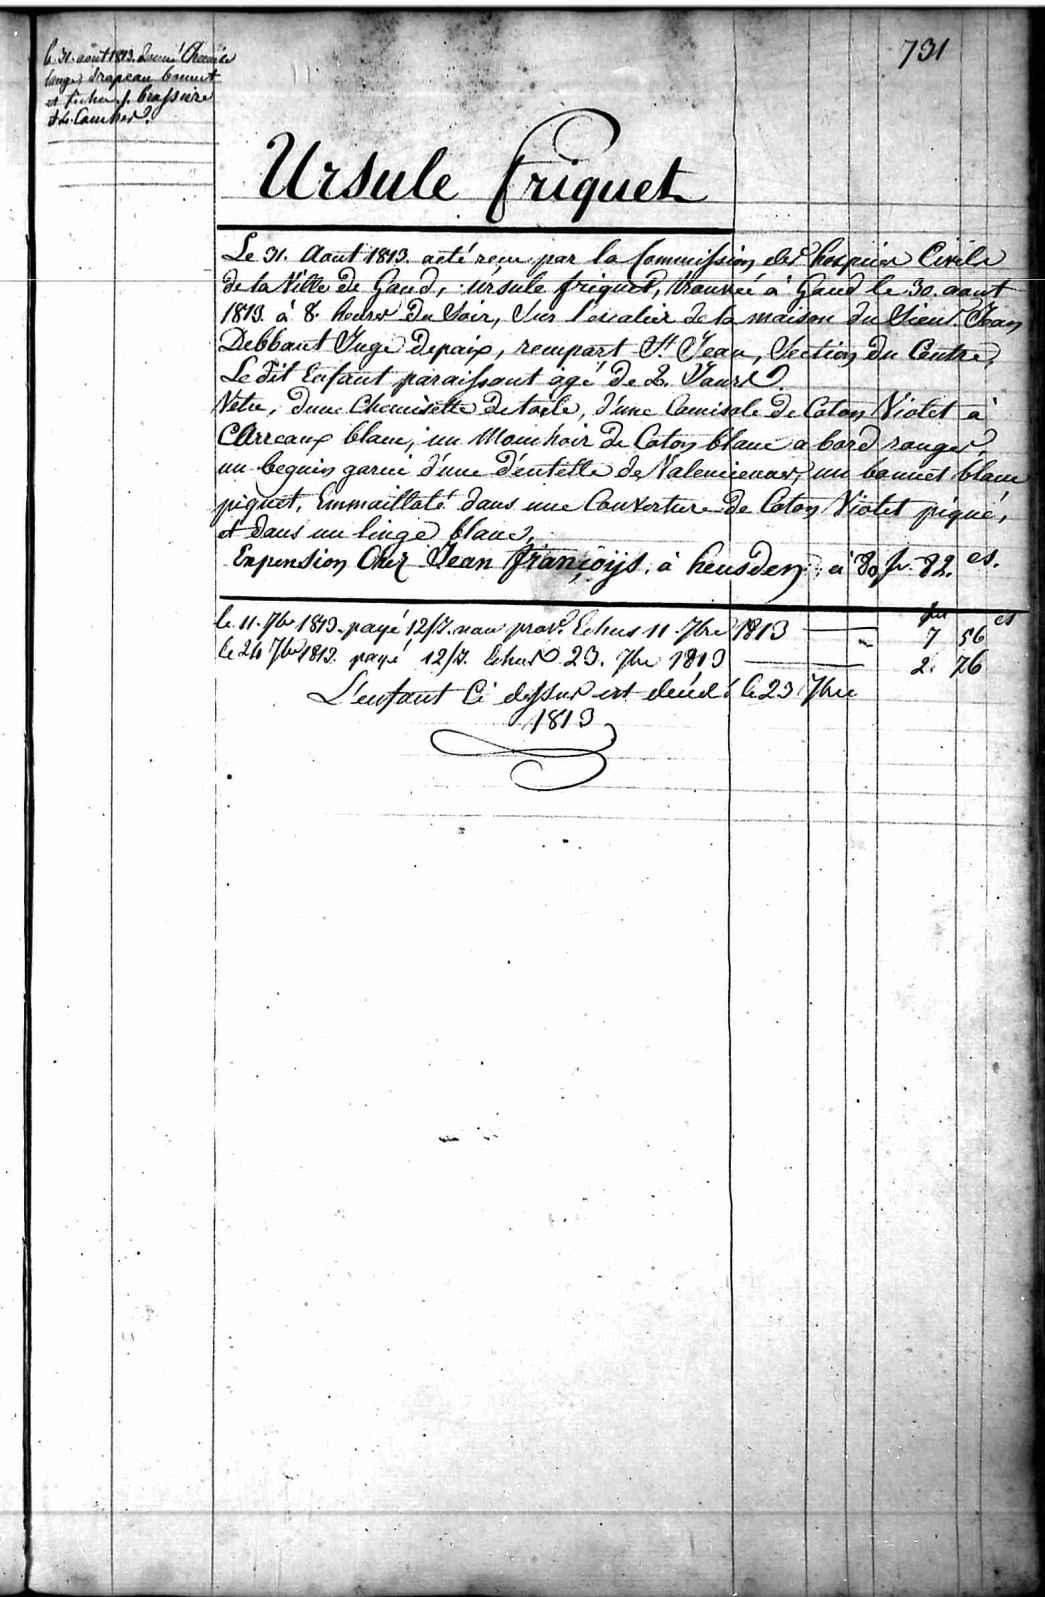 731
le 31. août 1813. donné Chemise
langes drapeau bonnet
et fichu, 1. brassière
Ursule friquet
Le 31. Aout 1813. a eté reçu par la Commission des hospices Civils
de la Ville de Gand, ursule friquet, trouvée à Gand le 30. aout
1813. à 8. heures du Soir, Sur l'escalier de la maison du Sieur Jean
Debbaut Juge depaix, rempart St. Jean, Section du Centre,
Le dit Enfant paraissant agé de 2. Jours.
Vetu, d'une Chemisette de toile, d'une Camisole de Coton Violet à
Carreaux blanc, un Mouchoir de Coton blanc a bord rouges,
un beguin garni d'une déntelle de Valenciennes, un bonnet blanc
piquet, Emmailloté dans une Couverture de Coton Violet piqué,
et dans un linge blanc,
Enpension Chez Jean françoijs. à heusden, à 80 fr. 82. cs.
fr cs
le 11. 7bre 1813. payé 12/7. nou prov. Echus 11 7bre 1813 7 56
le 24 7bre 1813. payé 12/7. Echus 23. 7bre 1813 2. 76
L'enfant Ci dessus est décédé le 23 7bre
1813